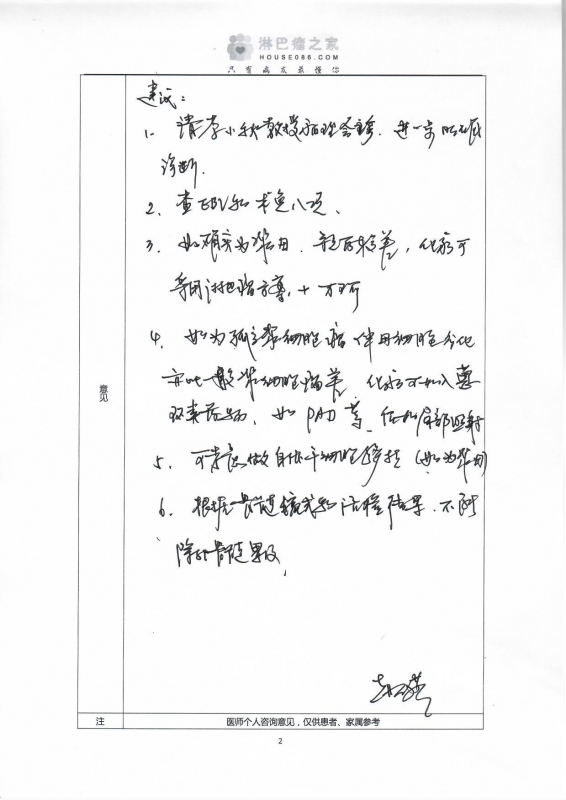 淋巴瘤之家
HOUSE086.COM
只有病友最懂你
建议：
1、请李小秋教授病理会诊，进一步明确
诊断.
2、查EBV和术免八项、
3、如确实为浆母、预后较差，化疗可
等同淋巴瘤方案，+万珂
4、如为孤立浆细胞瘤伴母细胞分化
亦比一般浆细胞瘤差、化疗可加入蒽
环类药物、如PAD等、佐加局部照射
5、可考虑做自体干细胞移植（如为浆母）
6、根据骨髓镜或和活检结果、不能
除外骨髓累及、
意见
注
医师个人咨询意见，仅供患者、家属参考
2